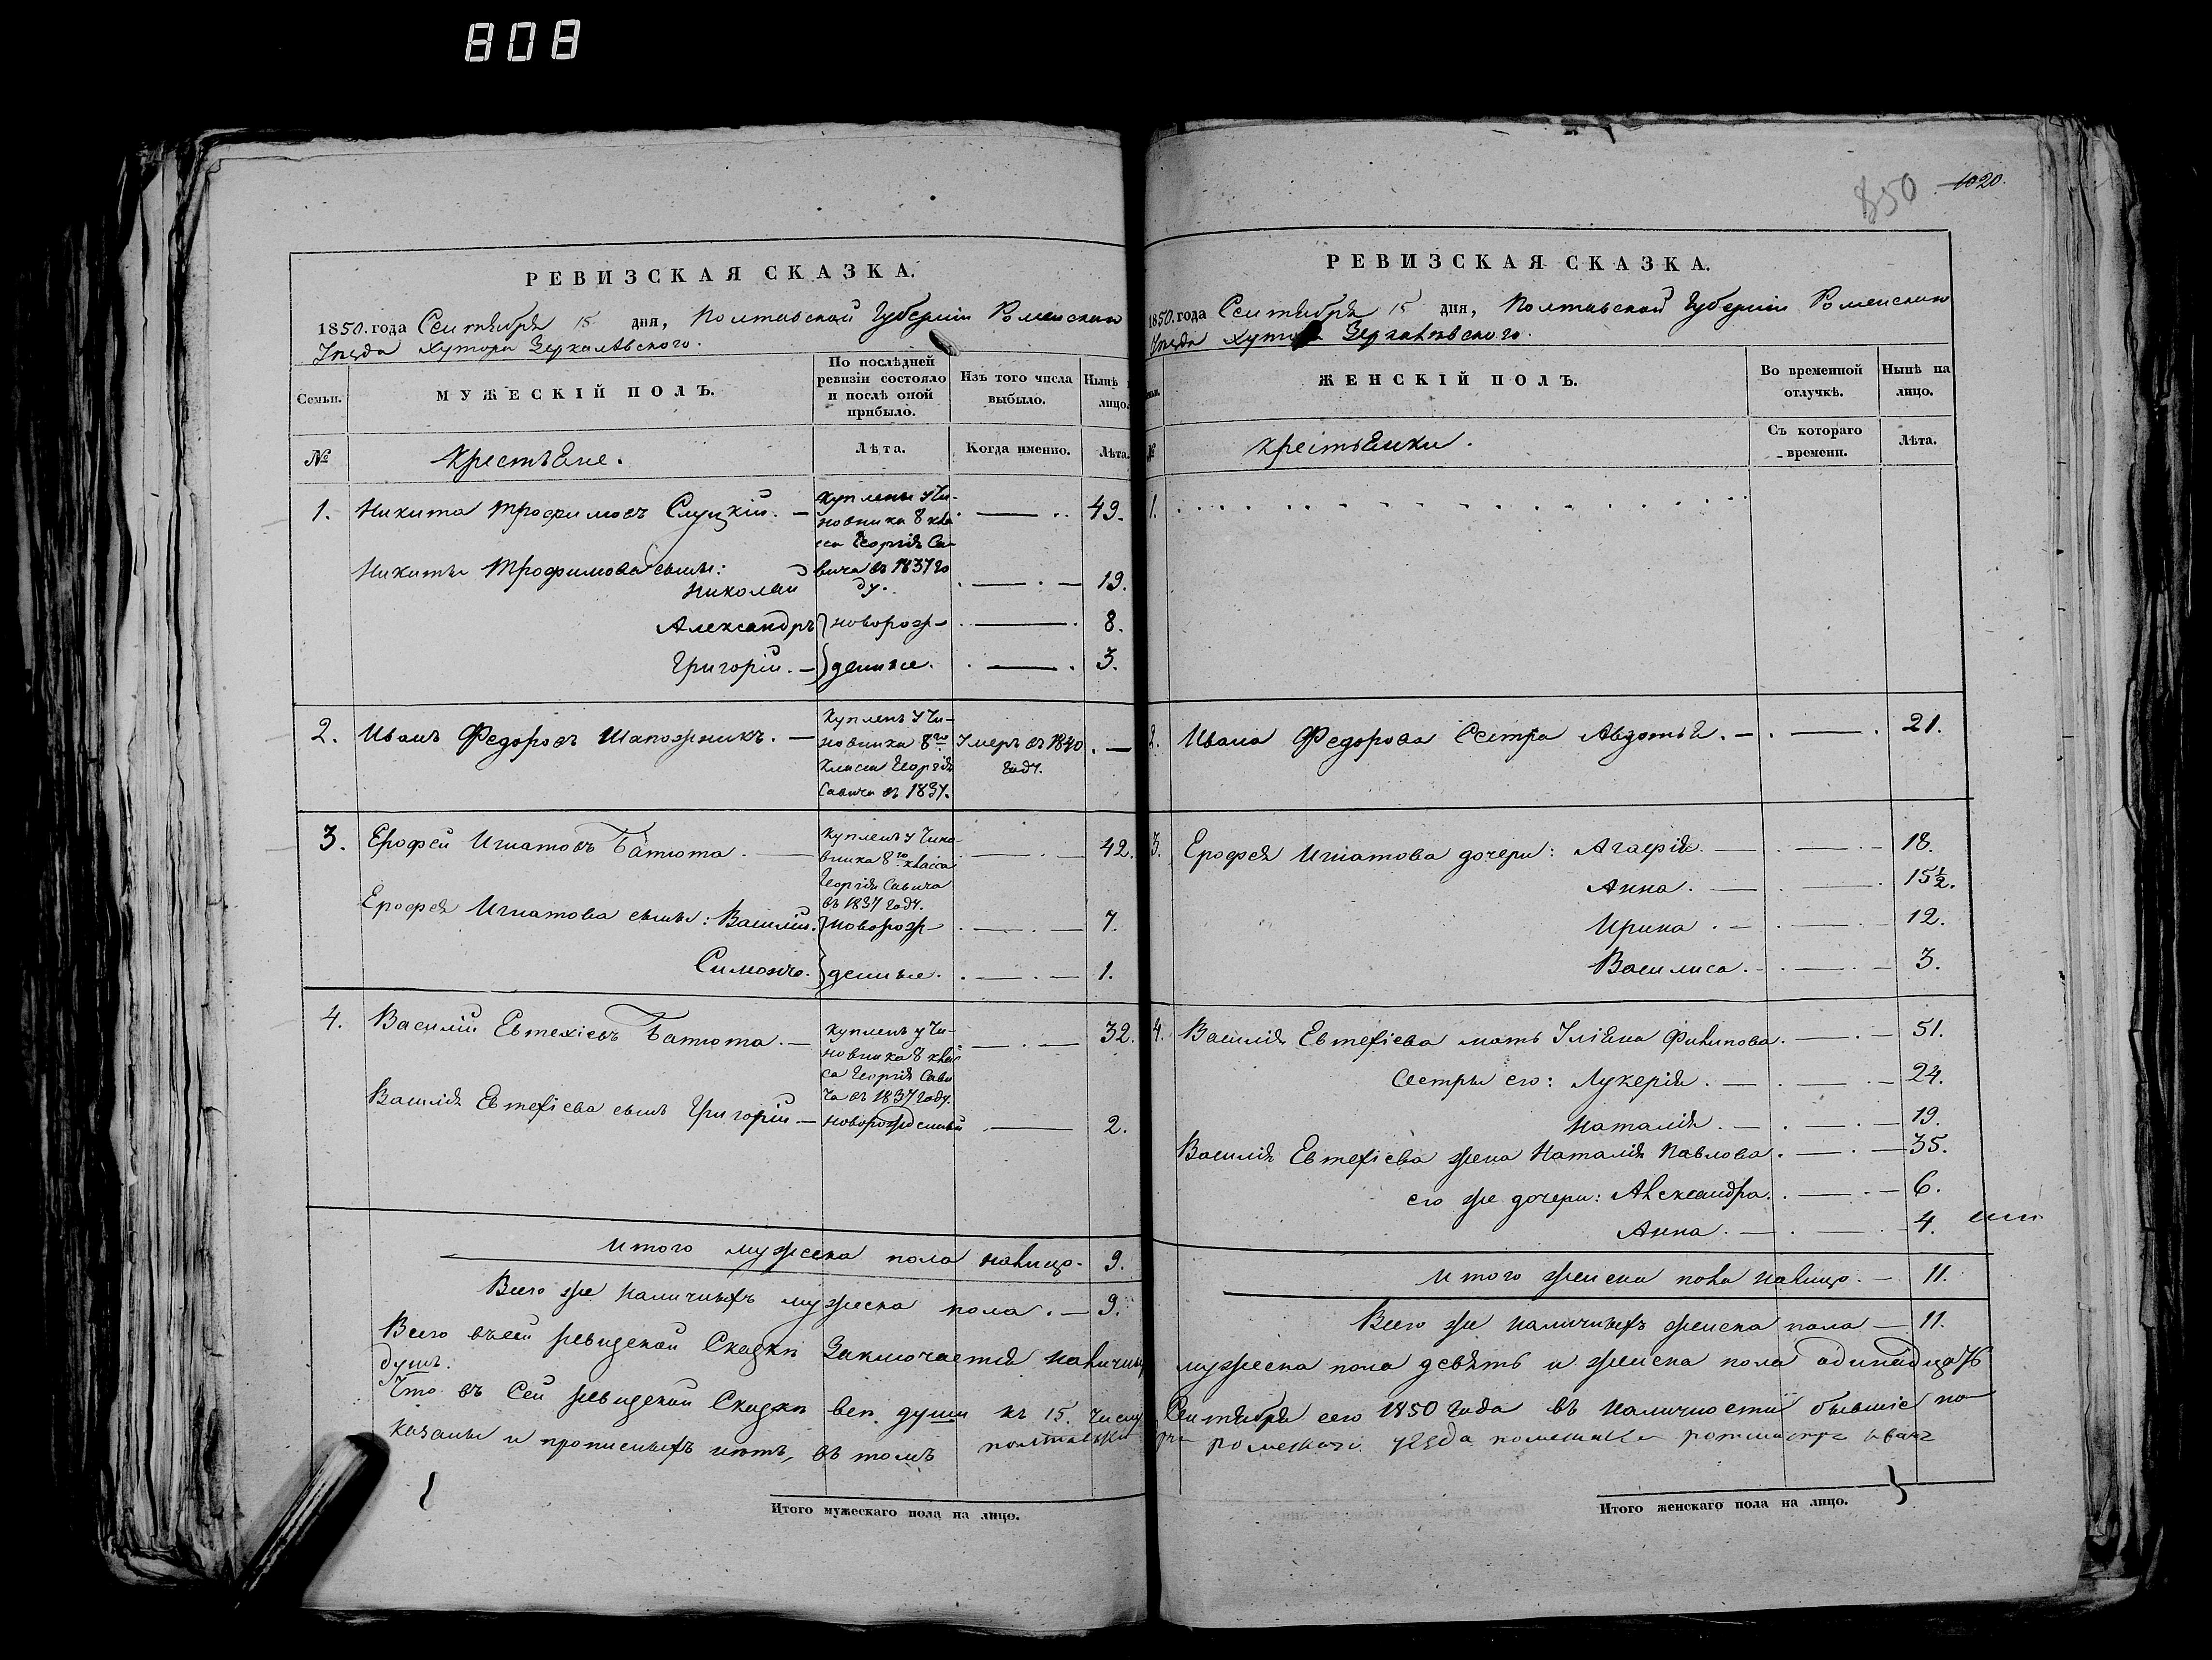 808
850 1020.
РЕВИЗСКАЯ СКАЗКА.
1850. года Сентября 15 дня, Полтавской Губерніи Роменскаго
Уѣзда Хутора Зеркалѣвского.
Семьи.
МУЖЕСКІЙ ПОЛЪ.
По послѣдней
ревизіи состояло
и послѣ оной
прибыло.
Изъ того числа
выбыло.
Нынѣ
лицо.
№
Крестьяне.
Лѣта.
Когда именно.
Лѣта.
1. Никита Трофимовъ Слуцкій. —
Куплены у Чи-
новника 8 кла
сса Георгія Са-
вича въ 1837 го
ду.
49.
Никиты Трофимова сыны:
Николай 19.
Александръ } новорож- 8.
Григорій. — } денные. 3.
2. Иванъ Федоровъ Шапожникъ. —
Купленъ у Чи-
новника 8го
Класса Георгія
Савича въ 1837.
Умеръ въ 1840
году.
—
3. Ерофей Игнатовъ Батюта. —
Купленъ у Чино-
вника 8го класса
Георгія Савича
въ 1837 году.
42.
Ерофея Игнатова сыны: Василій. } новорож- 7.
Симонъ. } денные. 1.
4. Василій Евтехіевъ Батюта. —
Купленъ у Чи-
новника 8 клас
са Георгія Сави
ча въ 1837 году.
32.
Василія Евтехіева сынъ Григорій — новорожденный 2.
Итого мужеска пола налицо. 9.
Всего же наличныхъ мужеска пола. — 9.
РЕВИЗСКАЯ СКАЗКА.
1850. года Сентября 15 дня, Полтавской Губерніи Роменскаго
Уѣзда Хутора Зеркалѣвского.
ЖЕНСКІЙ ПОЛЪ.
Во временной
отлучкѣ.
Нынѣ на
лицо.
№
Крестьянки.
Съ котораго
времени.
Лѣта.
1.
2. Ивана Федорова Сестра Авдотья. — 21.
3. Ерофея Игнатова дочери: Агафія. — 18.
Анна. — 15½.
Ирина. — 12.
Василиса. — 3.
4. Василія Евтехіева мать Уліяна Филипова. — 51.
Сестры его: Лукерія. — 24.
Наталія. — 19.
Василія Евтехіева жена Наталія Павлова. — 35.
его же дочери: Александра. — 6.
Анна. — 4.
Итого женска пола налицо. — 11.
Всего же наличныхъ женска пола — 11.
Всего въсей ревизской Сказкѣ Заключается наличныхъ мужеска пола девять и женска пола одинадцать
душъ.
Что въ Сей ревизской Сказкѣ всѣ души къ 15. числу Сентября сего 1850 года въ наличности бывшіе по
казаны и прописныхъ нѣтъ, въ томъ роменскаго уезда ротмистръ
Итого мужескаго пола на лицо.
Итого женскаго пола на лицо.